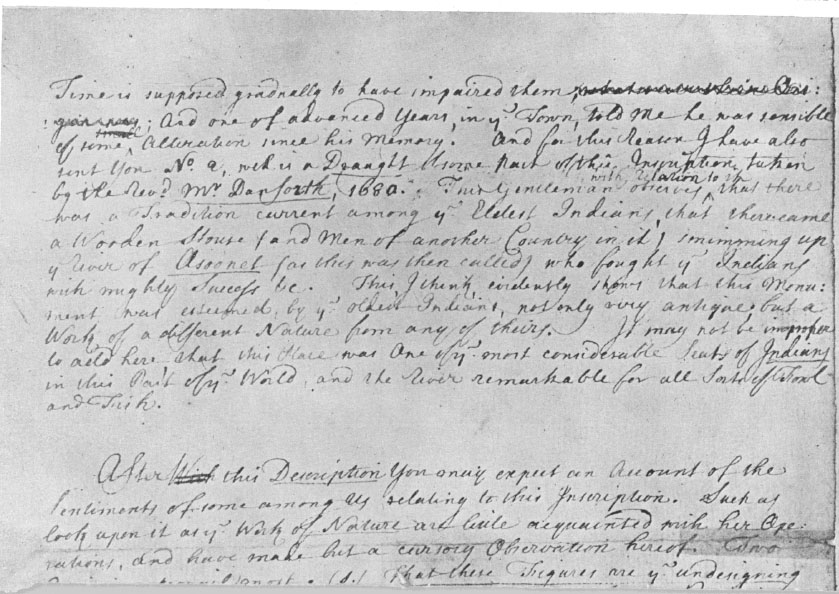 Time is supposed gradually to have impaired them,
; And one of advanced Years, in yᵉ Town, told Me he was sensible
of some Alteration since his Memory. And for this Reason I have also
sent You Nº. 2, wch is a Draught of some Part of this Inscription, taken
by the Revᵈ. Mʳ Danforth, 1680. This Gentleman observes with relation to it, that there
was a Tradition current among yᵉ Eldest Indians, that there came
a Wooden House (and Men of another Country in it) swimming up
yᵉ River of Asoonet (as this was then called) who fought yᵉ Indians
with mighty Success &c. This I think evidently shows that this Monu:
ment was esteemed by yᵉ oldest Indians, not only very antique, but a
Work of a different Nature from any of theirs. It may not be improper
to add here that this Place was One of yᵉ most considerable Seats of Indians
in this Part of yᵉ World, and the River remarkable for all Sorts of Fowl
and Fish.
After this Description You may expect an Account of the
Sentiments of some among Us relating to this Inscription. Such as
look upon it as yᵉ Work of Nature are little acquainted with her Ope:
rations, and have made but a cursory Observation hereof. Two
(1.) That these Figures are yᵉ undesigning